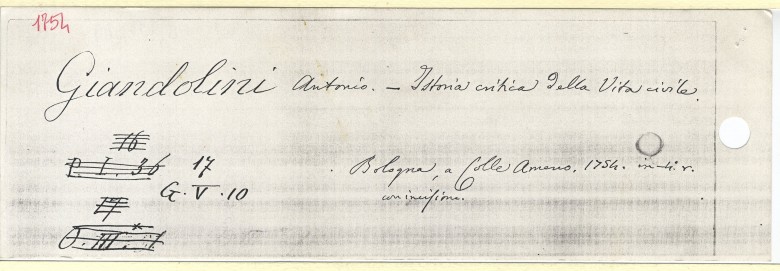 1754
Giandolini Antonio. – Istoria critica della Vita civile.
16
P. I. 36 17
Bologna, a Colle Ameno, 1754. in-4. v.
G. V. 10
con incisione.
17
O. III.